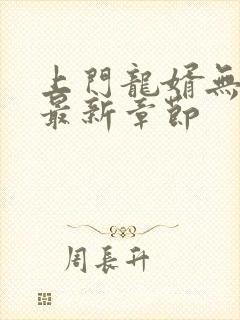 上門龍婿無
最新章節
周長升